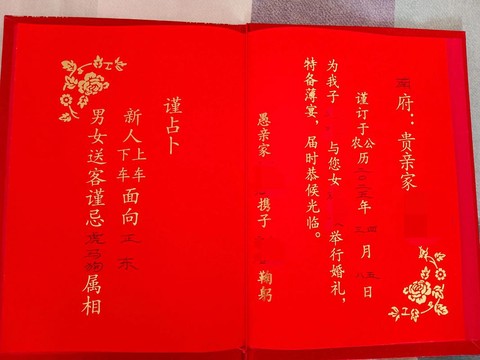 南府：贵亲家
谨订于农公历二〇二三年 月 日
为我子 与您女 举行婚礼，
特备薄宴，届时恭候光临。
愚亲家 携子 鞠躬
谨占卜
新人上下车车面向正东
男女送客谨忌虎马狗属相